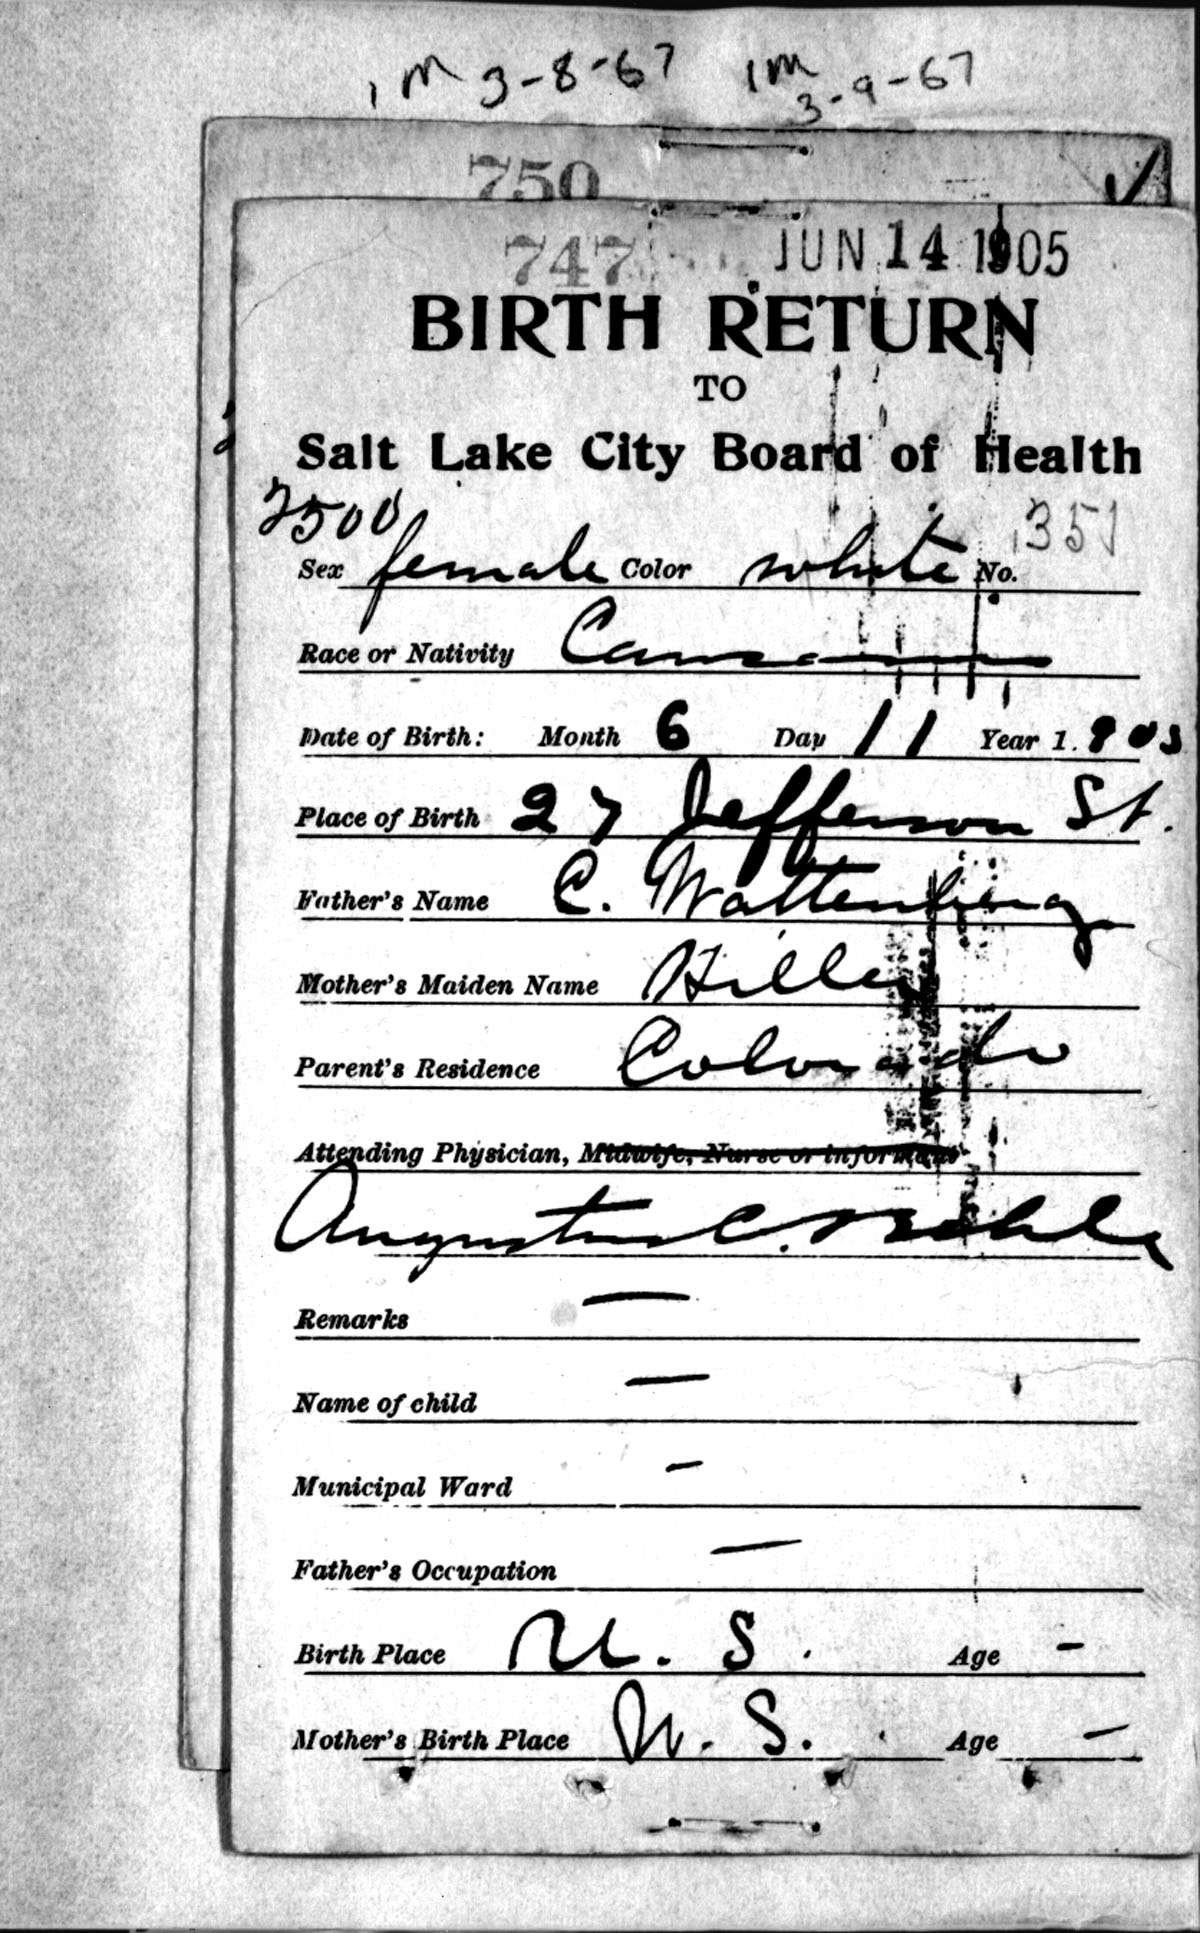 1M 3-8-67 1M 3-9-67
750
747 JUN 14 1905
BIRTH RETURN
TO
Salt Lake City Board of Health
2500 351
Sex female Color white No.
Race or Nativity
Date of Birth: Month 6 Day 11 Year 1.905
Place of Birth 27 Jefferson St.
Father's Name C. Wattenberg
Mother's Maiden Name Hiller
Parent's Residence Colorado
Attending Physician, Midwife, Nurse or informant
Augustus C. Behle
Remarks —
Name of child —
Municipal Ward -
Father's Occupation —
Birth Place U. S. Age -
Mother's Birth Place U. S. Age -